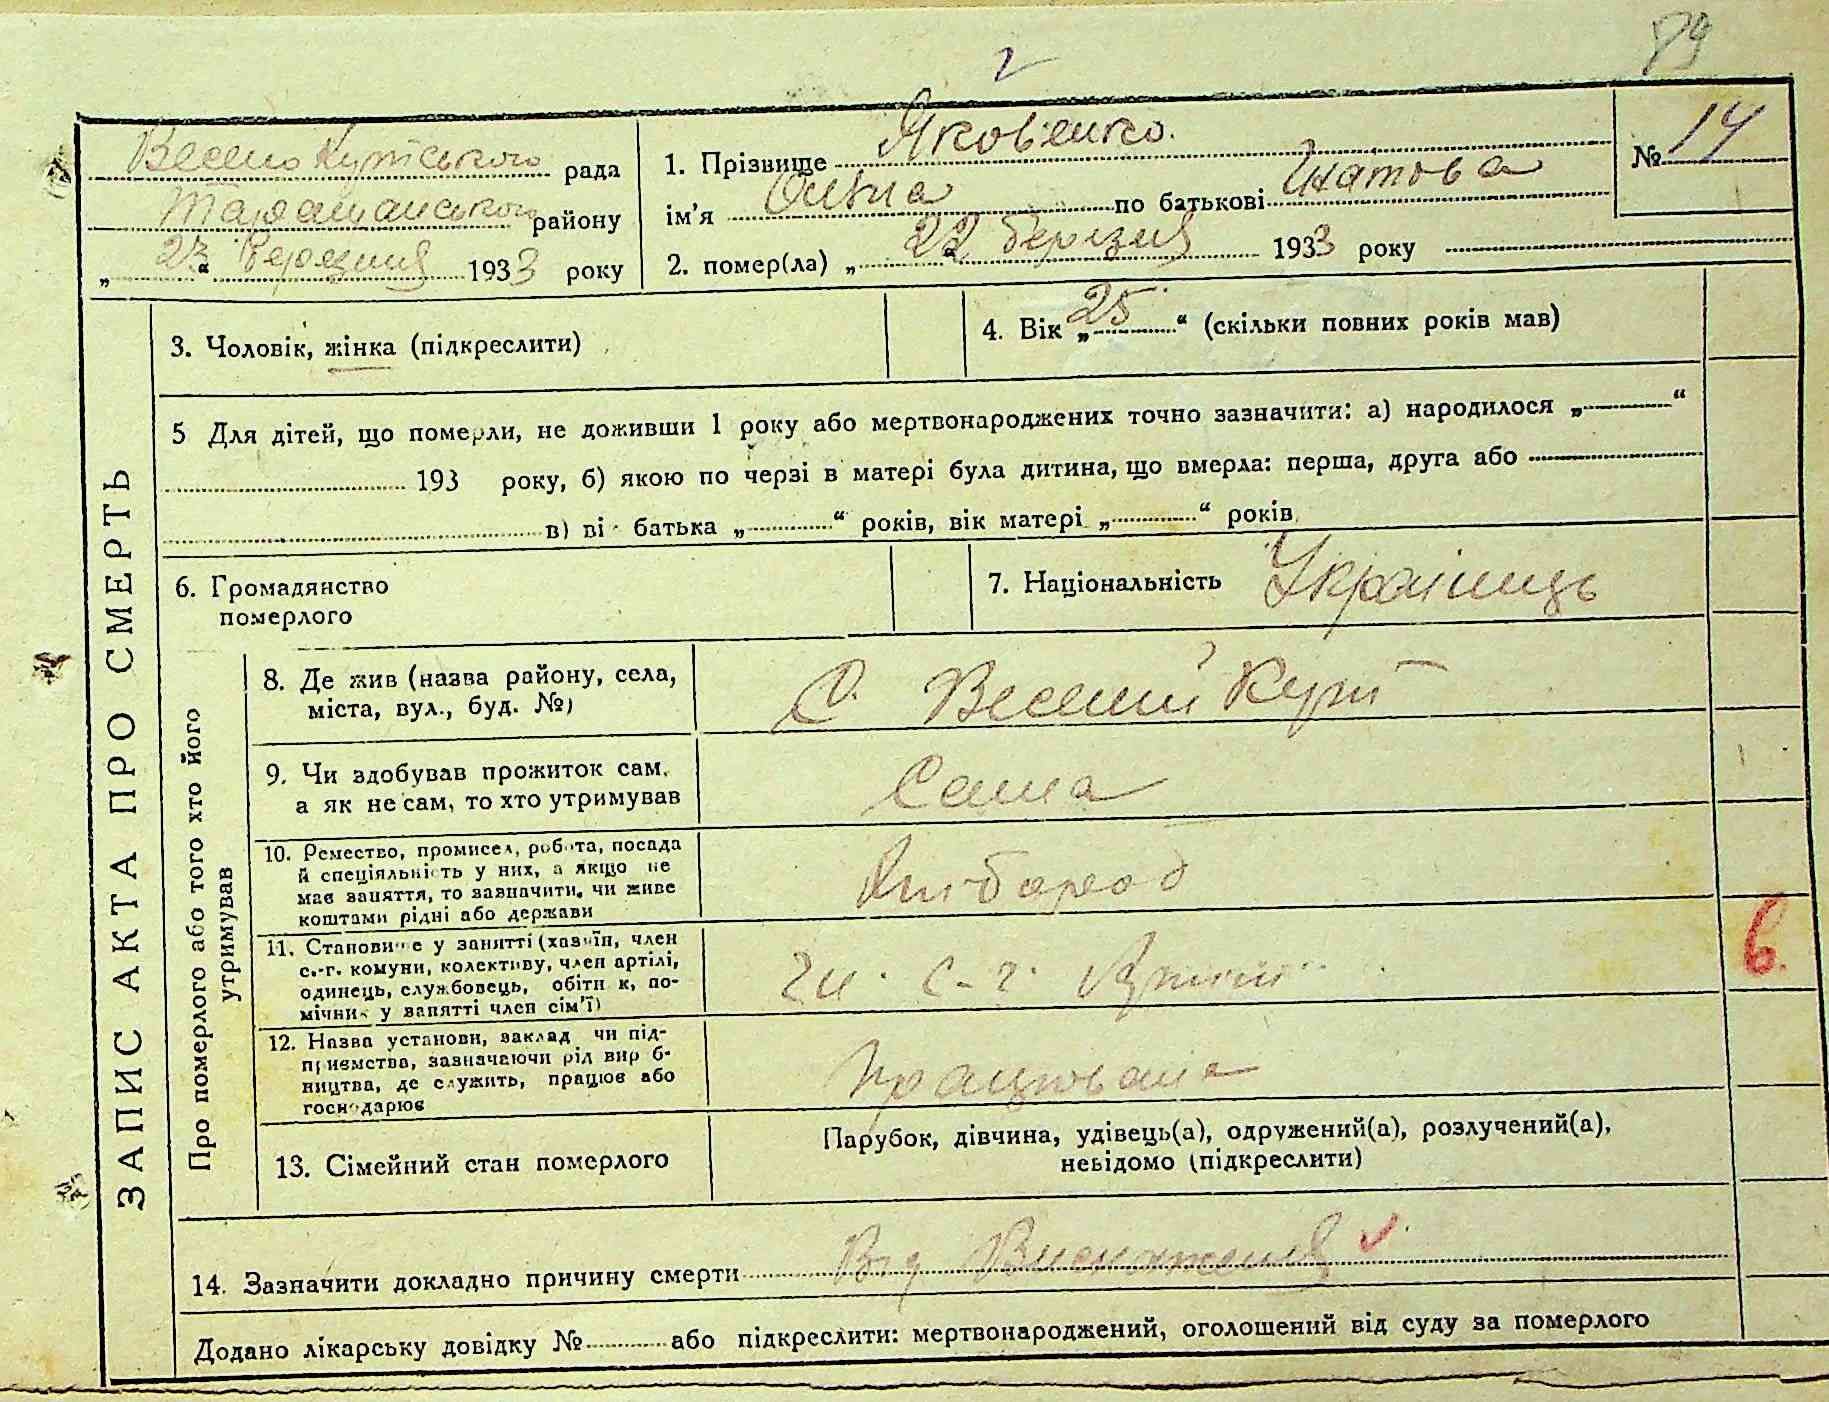 89
2
Весело Кутського рада
Таращанського району
„ 23 “ Березня 1933 року
1. Прізвище Яковенко.
ім'я Олина по батькові Гнатова
2. помер(ла) „ 22 “ березня 1933 року
№ 14
ЗАПИС АКТА ПРО СМЕРТЬ
3. Чоловік, жінка (підкреслити)
4. Вік „ 25 “ (скільки повних років мав)
5 Для дітей, що померли, не доживши 1 року або мертвонароджених точно зазначити: а) народилося „ “
193 року, б) якою по черзі в матері була дитина, що вмерла: перша, друга або
в) ві батька „ “ років, вік матері „ “ років
6. Громадянство
померлого
7. Національність Українець
Про померлого або того хто його
утримував
8. Де жив (назва району, села,
міста, вул., буд. №)
С. Веселий Кут
9. Чи здобував прожиток сам,
а як не сам, то хто утримував
Сама
10. Ремество, промисел, робота, посада
й спеціяльність у них, а якщо не
має заняття, то зазначити, чи живе
коштами рідні або держави
Хлібороб
11. Становище у занятті (хазяїн, член
с.-г. комуни, колективу, член артілі,
одинець, службовець, обітник, по-
мічник у занятті член сім'ї)
Чл. С-г. Артілі
6.
12. Назва установи, заклад чи під-
приємства, зазначаючи рід вироб-
ництва, де служить, працює або
господарює
Працювала
13. Сімейний стан померлого
Парубок, дівчина, удівець(а), одружений(а), розлучений(а),
невідомо (підкреслити)
14. Зазначити докладно причину смерти Від Виснаження
Додано лікарську довідку № або підкреслити: мертвонароджений, оголошений від суду за померлого